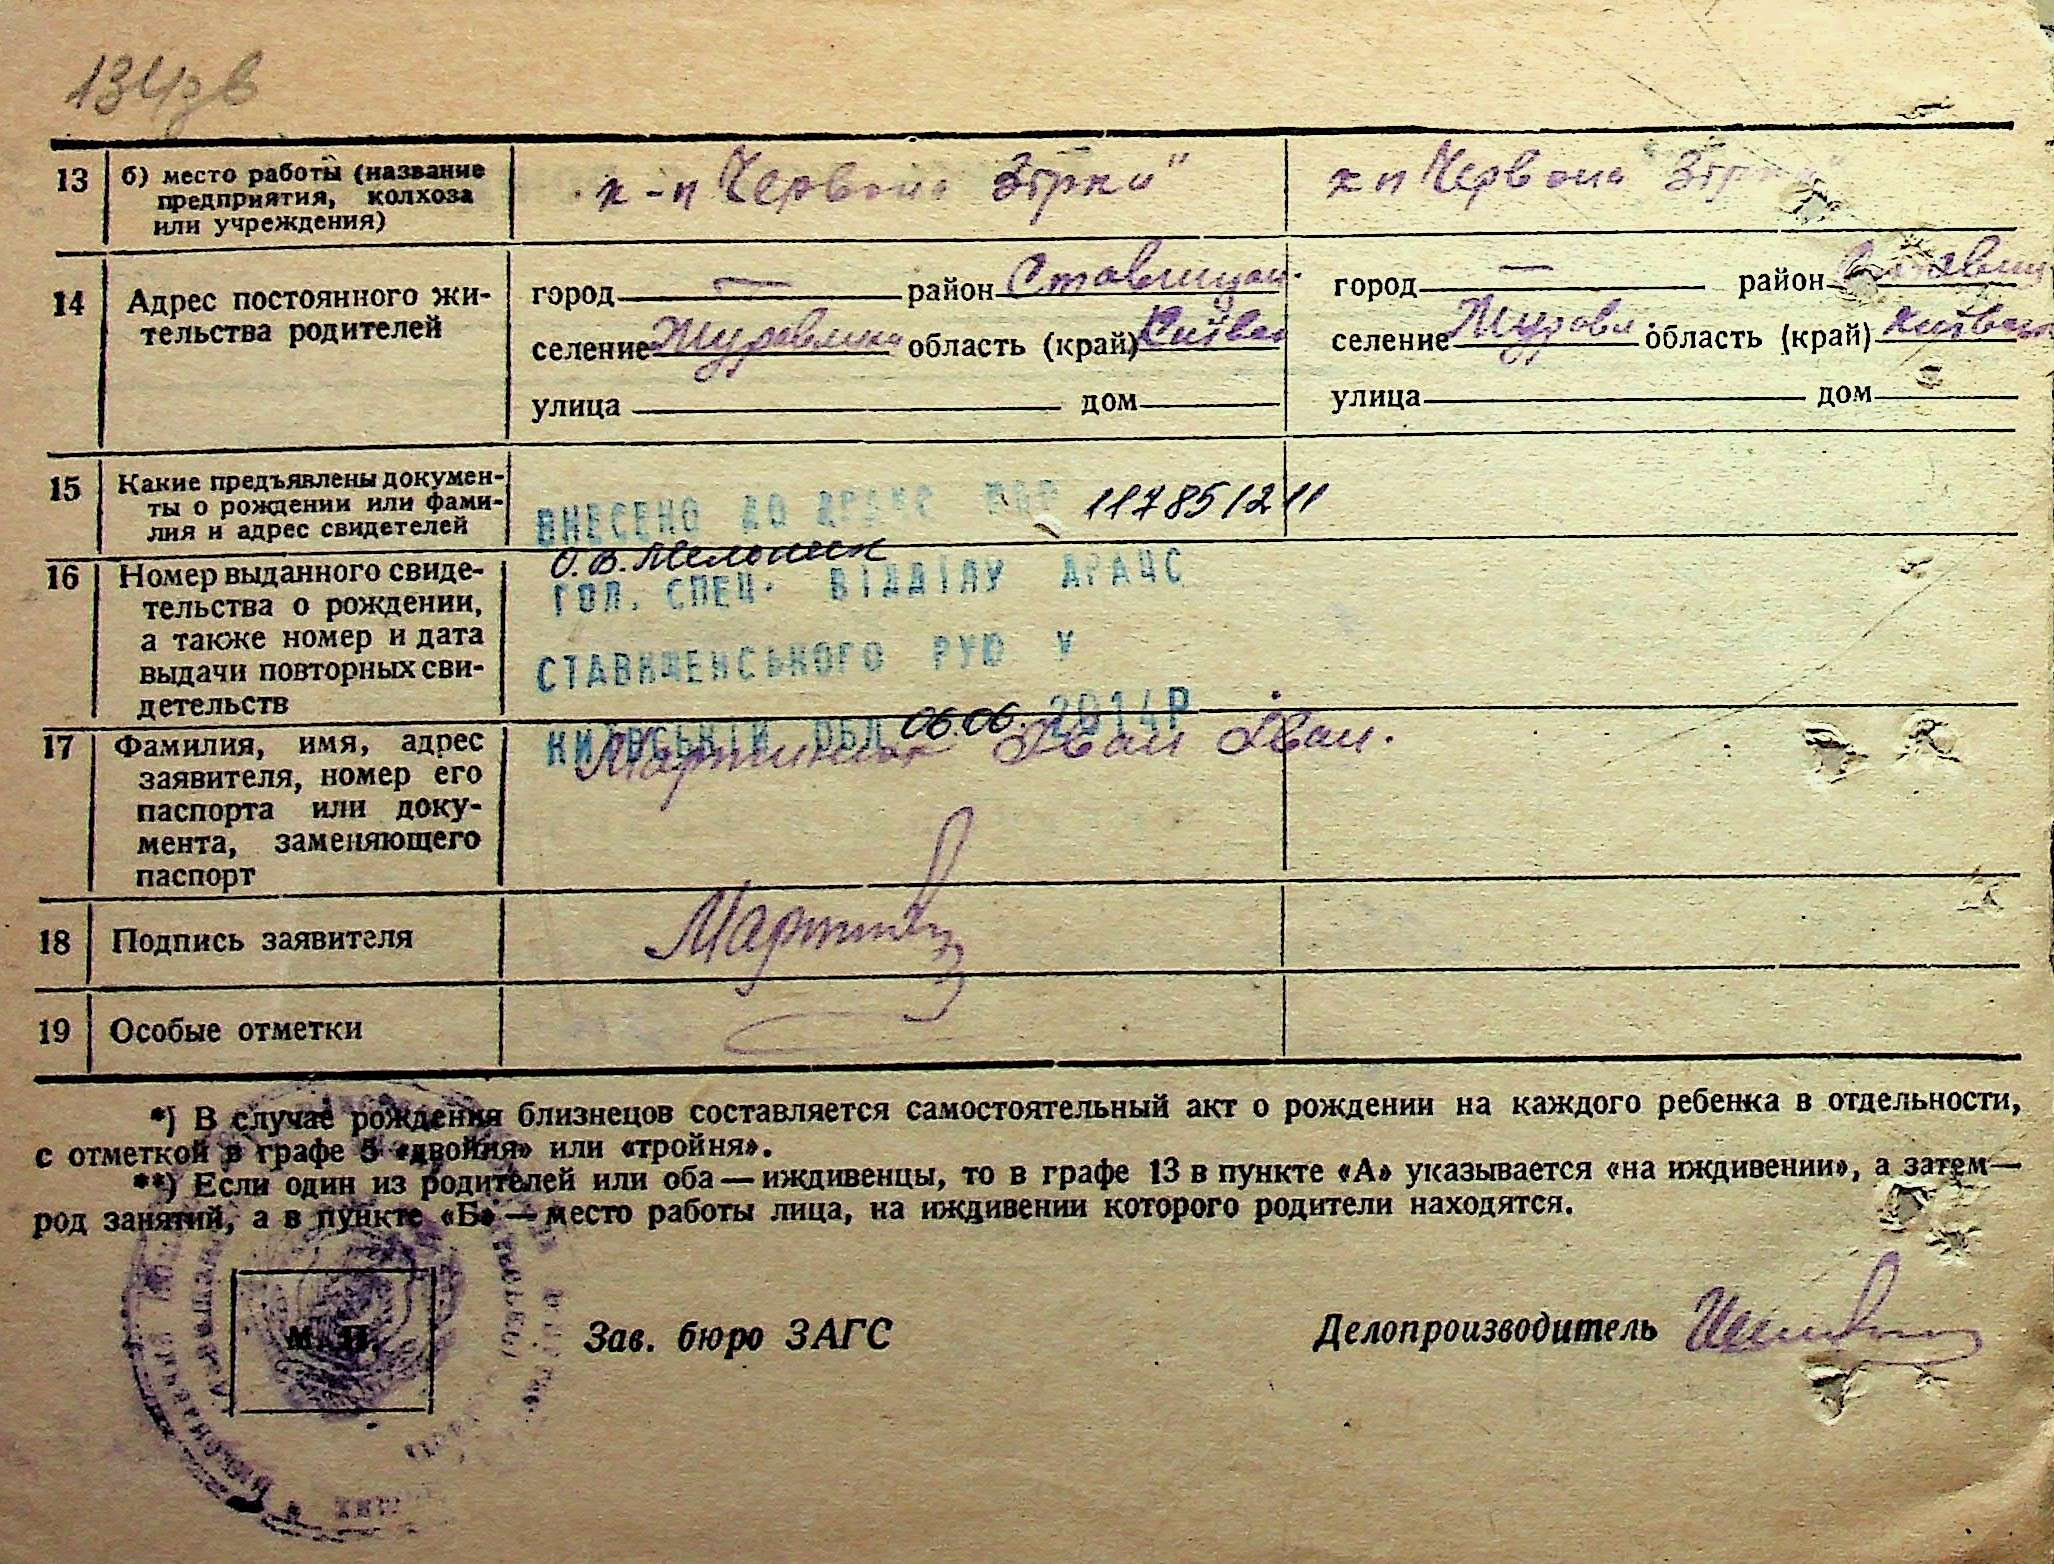 134зв
13 б) место работы (название предприятия, колхоза или учреждения) к-п Червона Зірка" к п Червона Зірка
14 Адрес постоянного жи-
тельства родителей
город — район Ставищан. город — район Ставищ
селение Журавлиха область (край) Київсь селение Журавл. область (край) Київськ
улица дом улица дом
15 Какие предъявлены докумен-
ты о рождении или фами-
лия и адрес свидетелей
ВНЕСЕНО ДО ДРАЦС 117851211
О.В. Мельник
16 Номер выданного свиде-
тельства о рождении,
а также номер и дата
выдачи повторных сви-
детельств
ГОЛ. СПЕЦ. ВІДДІЛУ ДРАЦС
СТАВИЩЕНСЬКОГО РУЮ У
КИЇВСЬКІЙ ОБЛ 06.06. 2014Р
17 Фамилия, имя, адрес
заявителя, номер его
паспорта или доку-
мента, заменяющего
паспорт
Мартинюк Іван Іван.
18 Подпись заявителя
19 Особые отметки
*) В случае рождения близнецов составляется самостоятельный акт о рождении на каждого ребенка в отдельности,
с отметкой в графе 5 «двойня» или «тройня».
**) Если один из родителей или оба — иждивенцы, то в графе 13 в пункте «А» указывается «на иждивении», а затем —
род занятий, а в пункте «Б» — место работы лица, на иждивении которого родители находятся.
М. П.
Зав. бюро ЗАГС Делопроизводитель